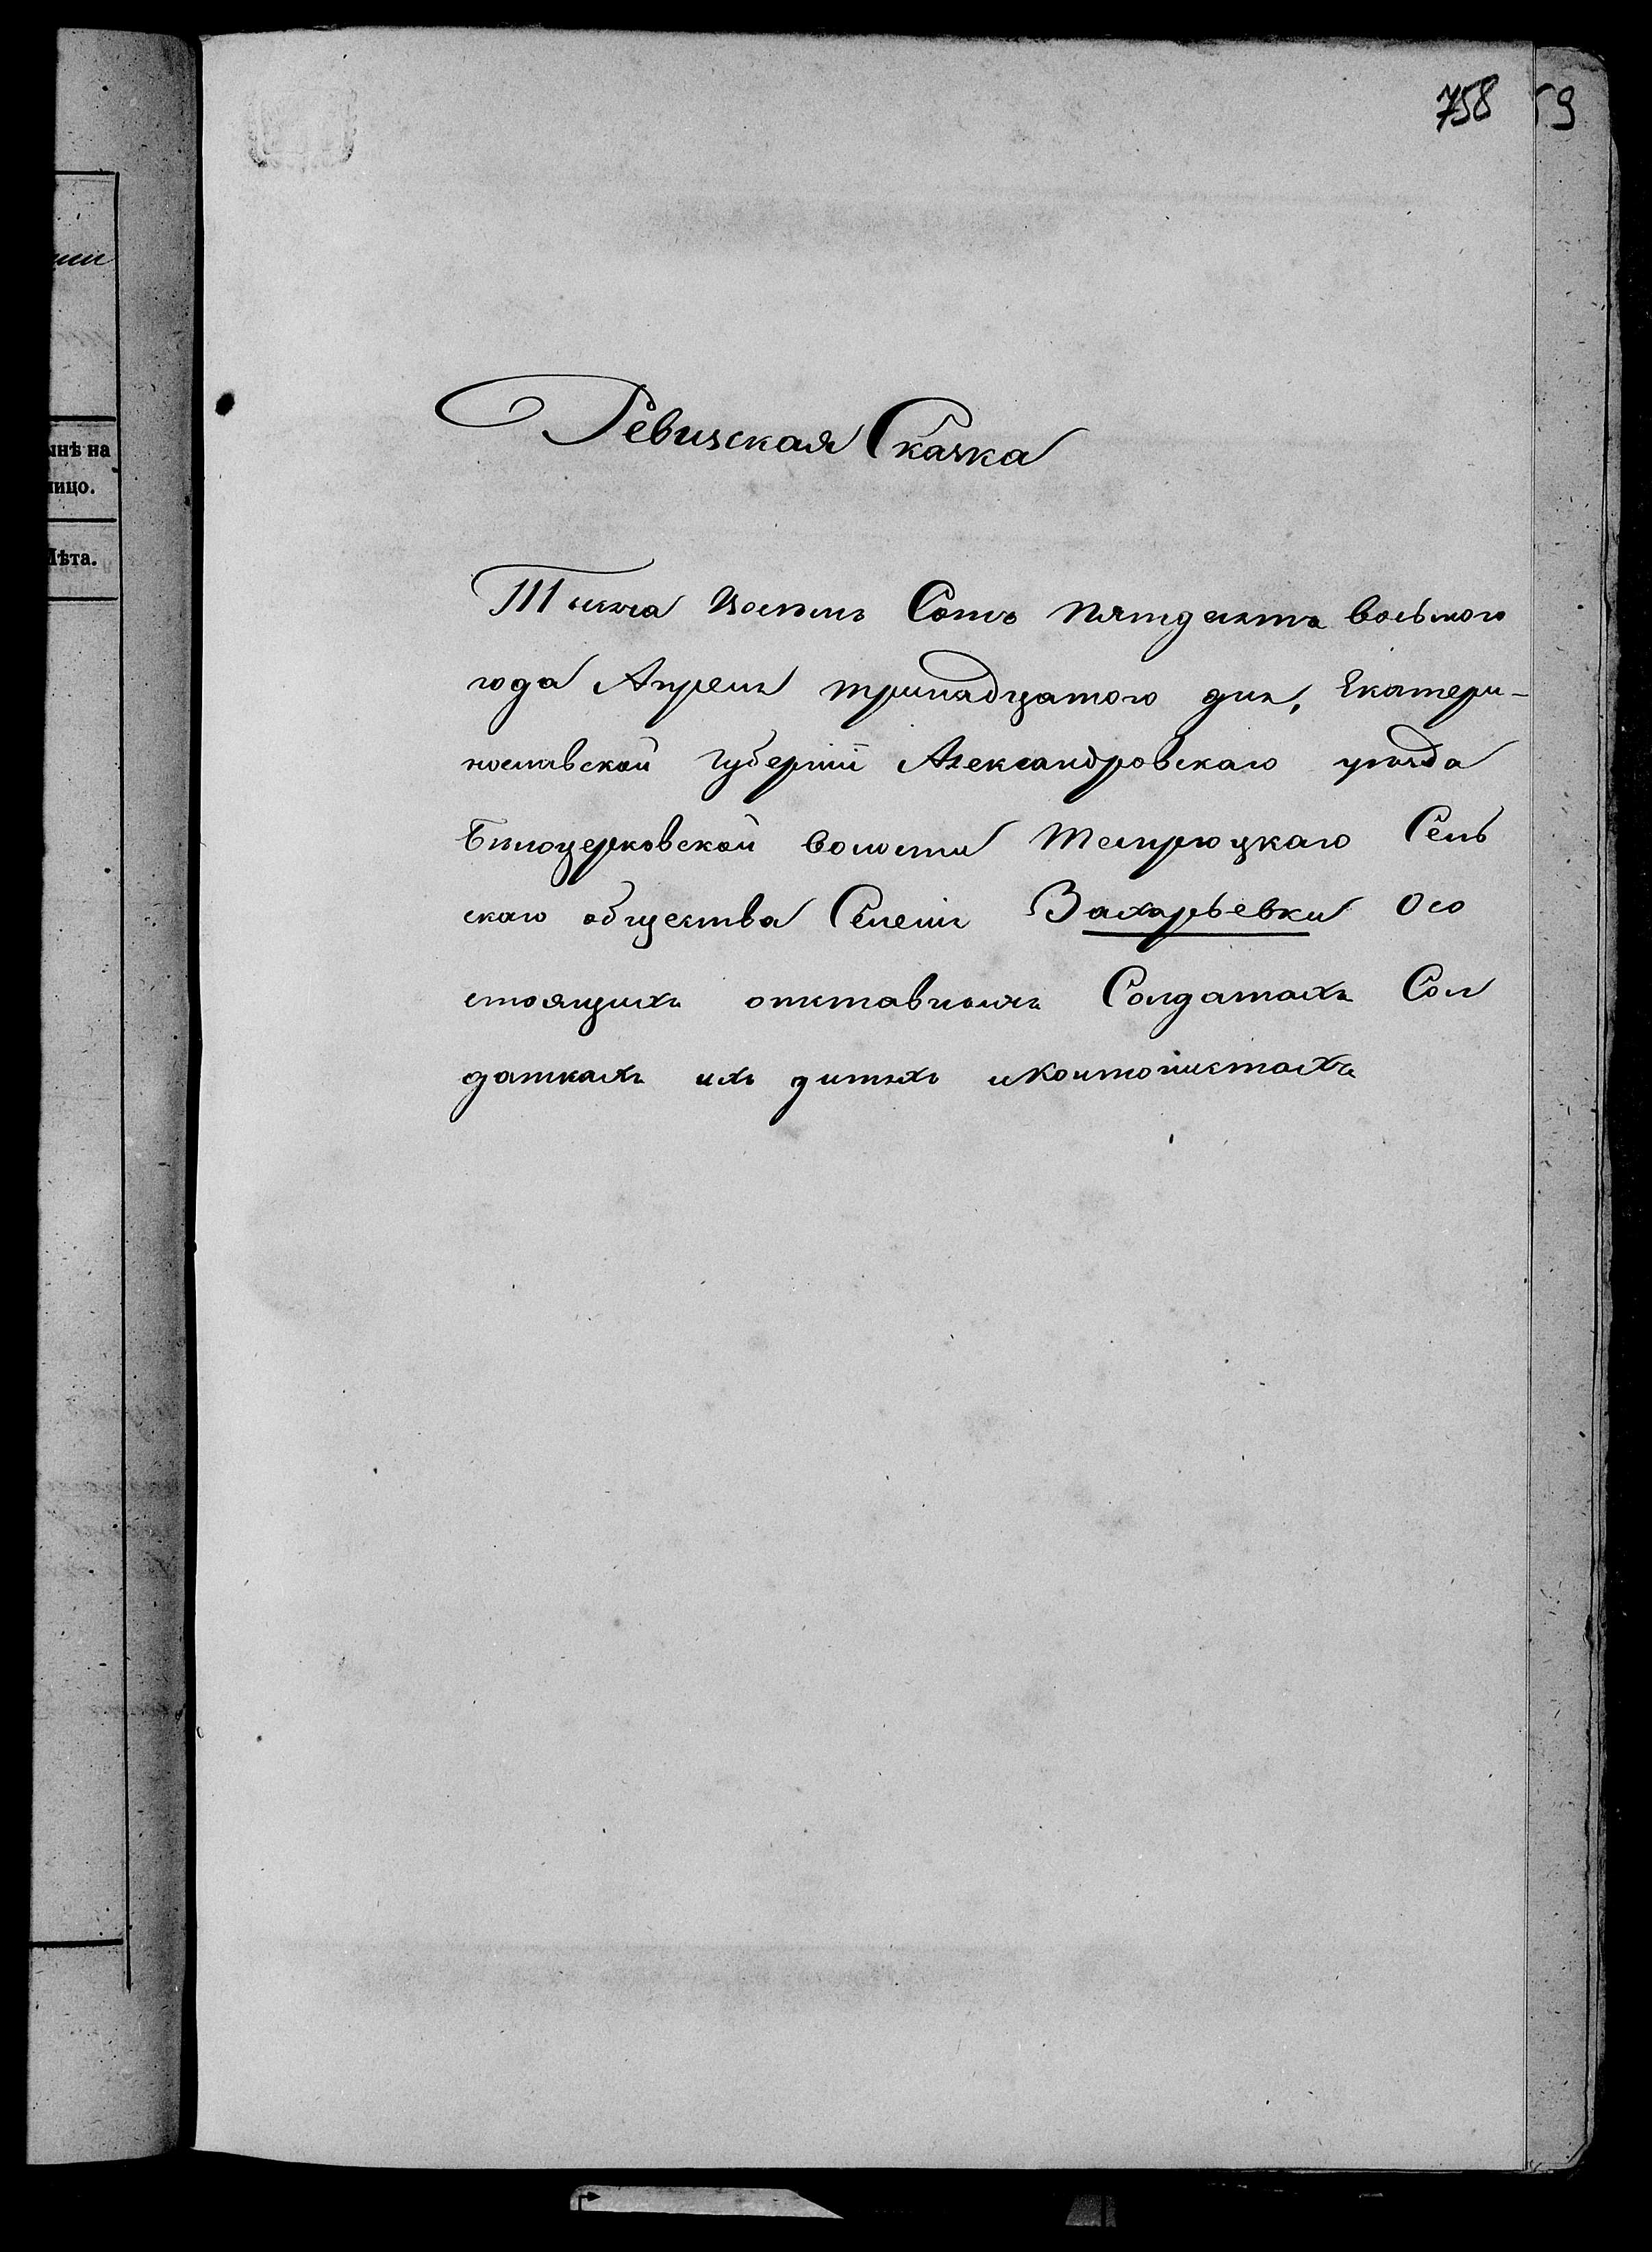 758
59
Ревизская Сказка
Тысяча Восемь Сотъ пятдесятъ восьмого
года Апреля тринадцатого дня, Екатери-
нославской Губерніи Александровскаго уѣзда
Бѣлоцерковской волости Темрюцкаго Сель
скаго общества Селенія Захарьевки О со
стоящихъ отставныхъ Солдатахъ Сол
даткахъ ихъ дитяхъ и Контонистахъ
ынѣ на
лицо.
Лѣта.